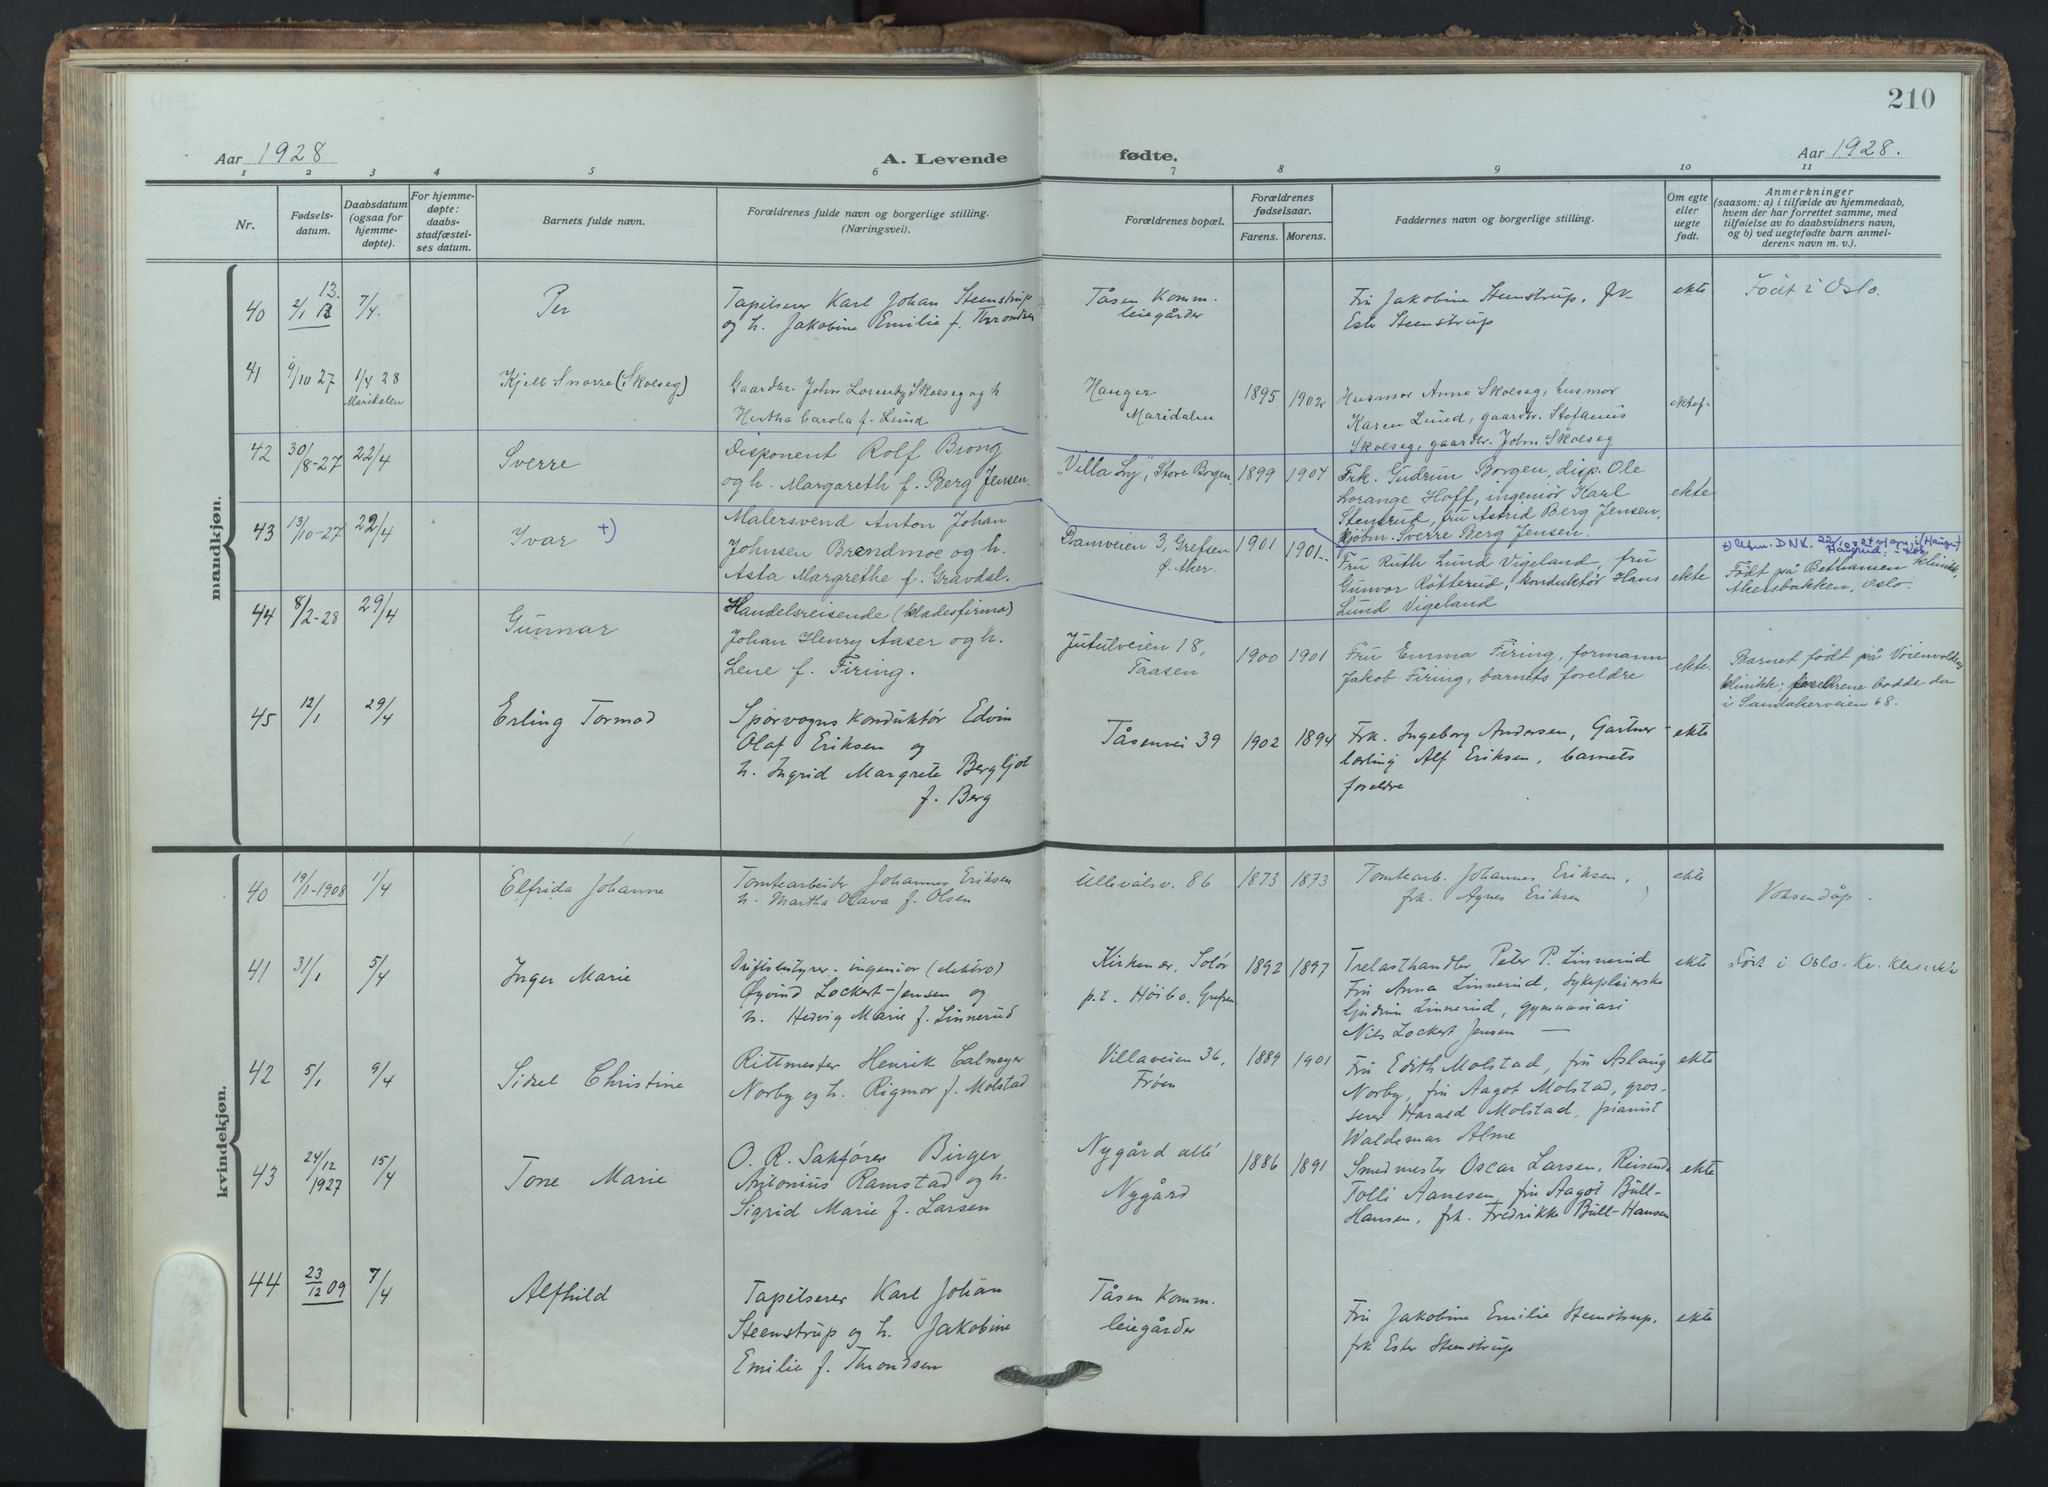 210
Aar 1928 A. Levende fødte. Aar 1928.
1 2 3 4 5 6 7 8 9 10 11
Nr.
Fødsels-
datum.
Daabsdatum
(ogsaa for
hjemme-
døpte).
For hjemme-
døpte:
daabs-
stadfæstel-
ses datum.
Barnets fulde navn.
Forældrenes fulde navn og borgerlige stilling.
(Næringsvei).
Forældrenes bopæl.
Forældrenes
fødselsaar.
Farens. Morens.
Faddernes navn og borgerlige stilling.
Om egte
eller
uegte
født.
Anmerkninger
(saasom: a) i tilfælde av hjemmedaab,
hvem der har forrettet samme, med
tilføielse av to daabsvidners navn,
og b) ved uegtefødte barn anmel-
derens navn m. v.).
mandkjøn.
40 2/1 13. 7/4. Per
Tapetserer Karl Johan Steenstrup
og h. Jakobine Emilie f. Throndsen
Tåsen Komm.
leiegårder
Fru Jakobine Steenstrup, frk
Ester Steenstrup
ekte
Født i Oslo.
41 9/10 27 1/4 28
Maridalen
Kjell Snorre (Skolseg)
Gaardbr. John Lorentz Skolseg og h
Hertha Carola f. Lund
Hauger
Maridalen
1895 1902
Husmor Anna Skolseg, husmor
Karen Lund, gaardbr. Stefanus
Skolseg, gaardbr. John Skolseg
ektef-
42 30/8-27 22/4 Sverre
Disponent Rolf Brong
og h. Margareth f. Berg Jensen
"Villa Ly", Store Borgen.
1899 1904
Frk. Gudrun Borgen, disp. Ole
Lorange Hoff, ingeniør Karl
Stensrud, fru Astrid Berg Jensen,
kjøbm. Sverre Berg Jensen.
ekte
43 13/10-27 22/4 Ivar +)
Malersvend Anton Johan
Johnsen Brendmoe og h.
Asta Margrethe f. Gravdal.
Damveien 3, Grefsen
Ø. Aker.
1901 1901
Fru Ruth Lund Vigeland, fru
Gunvor Røtterud, konduktør Hans
Lund Vigeland
ekte
+) Utm. DNK. 22/10
Født på Bethanien klinikk,
Akersbakken, Oslo.
44 8/2-28 29/4 Gunnar
Handelsreisende (klædesfirma)
Johan Henry Aaser og h.
Lene f. Firing.
Jutulveien 18,
Taasen
1900 1901
Fru Emma Firing, formann
Jakob Firing, barnets foreldre
ekte.
Barnet født på Voienvoldens
klinikk; foreldrene bodde da
i Sandakerveien 68.
45 12/1 29/4 Erling Tormod
Sporvognskonduktør Edvin
Olaf Eriksen og
h. Ingrid Margrete Bergljot
f. Berg
Tåsenvei 39
1902 1894
Frk. Ingeborg Andersen, Gartner-
lærling Alf Eriksen, barnets
foreldre
ekte
kvindekjøn.
40 19/1-1908 1/4 Elfrida Johanne
Tomtearbeider Johannes Eriksen
h. Martha Olava f. Olsen
Ullevålsv. 86
1873 1873
Tomtearb. Johannes Eriksen,
frk. Agnes Eriksen
ekte
Voksendåp.
41 31/1 5/4 Inger Marie
Driftsbestyrer-ingeniør (elektro)
Øyvind Lockert-Jensen og
h. Hedvig Marie f. Linnerud
Kirkenær, Solør
p.t. Høibo, Grefsen
1892 1897
Trelasthandler Peter P. Linnerud
Fru Anna Linnerud, Sykepleierske
Gudrun Linnerud, gymnasiast
Nils Lockert Jensen —
ekte
Født i Oslo. Kv. Klinikk
42 5/1 9/4 Sidsel Christine
Rittmester Henrik Calmeyer
Norby og h. Rigmor f. Molstad
Villaveien 36,
Frøen
1889 1901
Fru Edith Molstad, fru Aslaug
Norby, fru Aagot Molstad, gros-
serer Harald Molstad, pianist
Waldemar Alme
ekte
43 24/12 1927 15/4 Tone Marie
O. R. Sakfører Birger
Antonius Ramstad og h.
Sigrid Marie f. Larsen
Nygård allé
Nygård
1886 1891
Smedmester Oscar Larsen, Reisende
Tolli Aanesen, fru Aagot Bull-
Hansen, frk. Fredrikke Bull-Hansen
ekte
44 23/12 09 7/4 Alfhild
Tapetserer Karl Johan
Steenstrup og h. Jakobine
Emilie f. Throndsen
Tåsen Komm.
leiegårder
Fru Jakobine Emilie Steenstrup,
frk Ester Steenstrup
ekte